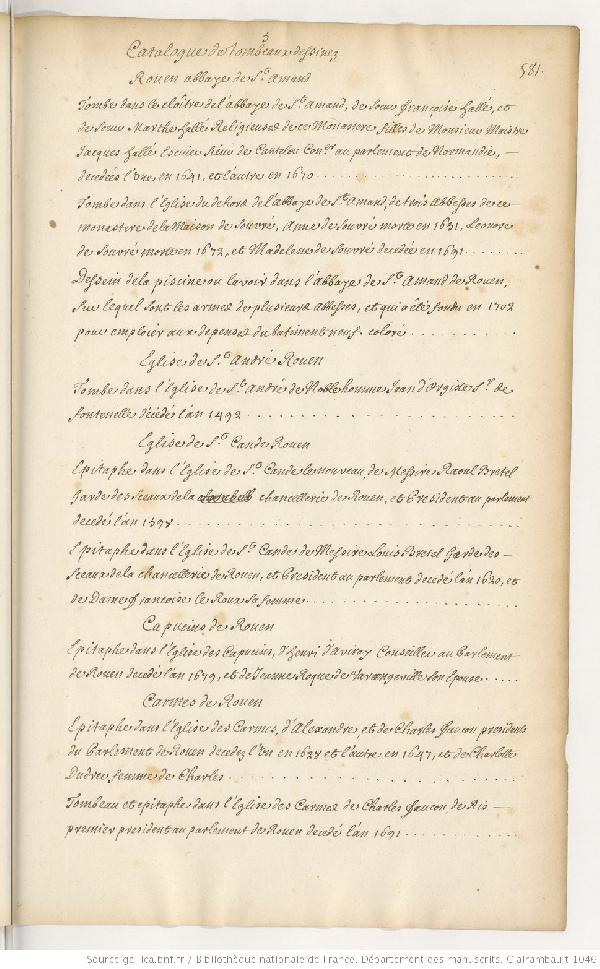 5
Catalogue de tombeaux dessinez
581.
Rouen abbaye de St. Amand
Tombe dans le cloître de l'abbaye de St. Amand, de Sœur françoise hallé, et
de Sœur Marthe hallé Religieuses de ce Monastere, filles de Monsieur Maistre
Jacques hallé Escuier Sieur de Cantelou Conr. au parlement de Normandie, —
decedées l'une en 1641, et l'autre en 1670
Tombe dans l'Eglise du dehors de l'abbaye de St. Amand, de trois Abbesses de ce
monastere de la Maison de Souvré, Anne de Souvré morte en 1651, Leonore
de Souvré morte en 1672, et Madelene de Souvré decedée en 1691
Dessein de la piscine ou lavoir dans l'abbaye de St. Amand de Rouen,
sur lequel sont les armes de plusieurs abbesses, et qui a été fondu en 1702
pour emploïer aux depenses du batiment neuf. coloré
Eglise de St. André Rouen
Tombe dans l'Eglise de St. André de Noble homme Jean d'Orgide Sr. de
fontenelle décédé l'an 1492
Eglise de St. Cande Rouen
Epitaphe dans l'Eglise de St. Cande le nouveau de Messire Raoul Bretel
Garde des Sceaux de la chancellerie de Rouen, et President au parlement
decedé l'an 1598
Epitaphe dans l'Eglise de St. Cande de Messire Louis Bretel Garde des —
Sceaux de la chancellerie de Rouen, et President au parlement decedé l'an 1630, et
de Dame françoise le Roux sa femme
Capucins de Rouen
Epitaphe dans l'Eglise des Capucins, d'henri d'aviray Conseiller au Parlement
de Rouen decedé l'an 1679, et de Jeanne Roque de Varangeville son Epouse
Carmes de Rouen
Epitaphe dans l'Eglise des Carmes, d'Alexandre et de Charles faucon presidents
du Parlement de Rouen decedez l'un en 1628 et l'autre en 1647, et de Charlotte
Dudrac femme de Charles
Tombeau et epitaphe dans l'Eglise des Carmes de Charles faucon de Ris —
premier president au parlement de Rouen decedé l'an 1691
Source gallica.bnf.fr / Bibliothèque nationale de France. Département des manuscrits. Clairambault 1046